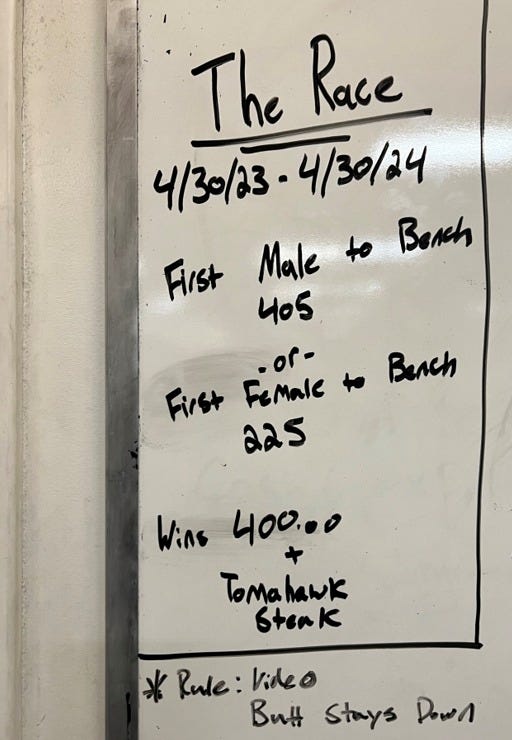 The Race
4/30/23 - 4/30/24
First Male to Bench
405
- or -
First Female to Bench
225
Wins 400.00
+
Tomahawk
Steak
* Rule: Video
Butt Stays Down